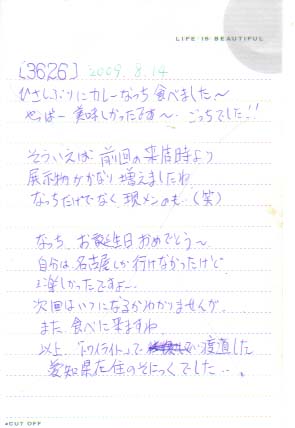 LIFE IS BEAUTIFUL
[3626] 2009.8.14
ひさしぶりにカレーなっち食べました〜
やっぱー美味しかったです〜. ごっちでした!!
そういえば前回の来店時より
展示物がかなり増えましたね
なっちだけでなく現メンのも…(笑)
なっち、お誕生日おめでとう〜
自分は名古屋しか行けなかったけど
楽しかったですよー
次回はいつになるかわかりませんが、
また、食べに来ますね
以上、「トワイライト」で 渡道した
愛知県在住のそにっくでした…。
CUT OFF